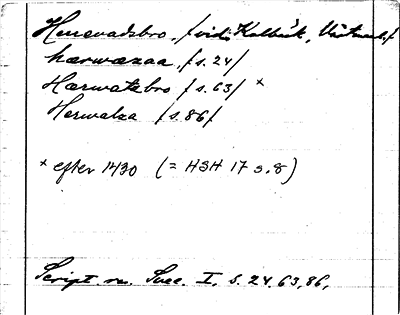 Henevadsbro, / vid Kolbäck, Västmanl. /
hærwazaa, / s. 24 /
Hærwatzbro / s. 63 / *
Herwalza / s. 86 /
* efter 1430 (= HSH 17 s. 8)
Script. rer. Suec. I. s. 24, 63, 86.